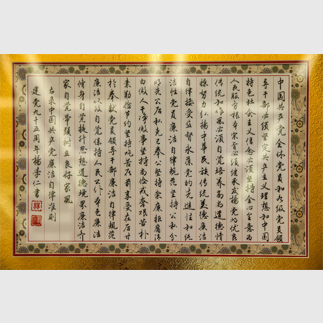 中国共产党全体党员和各级党员领
导干部必须坚定共产主义理想和中国
特色社会主义信念必须坚持全心全意为
人民服务根本宗旨必须继承发扬党的优良
传统和作风必须自觉培养高尚道德情
操努力弘扬中华民族传统美德廉洁
自律接受监督永葆党的先进性和纯
洁性党员廉洁自律规范坚持公私分
明先公后私克己奉公坚持崇廉拒腐清
白做人干净做事坚持尚俭戒奢艰苦朴
素勤俭节约坚持吃苦在前享受在后甘
于奉献党员领导干部廉洁自律规范
廉洁从政自觉保持人民公仆本色廉洁
修身自觉提升思想道德境界廉洁齐
家自觉带头树立良好家风
右录中国共产党廉洁自律准则
建党九十五周年杨季仁书